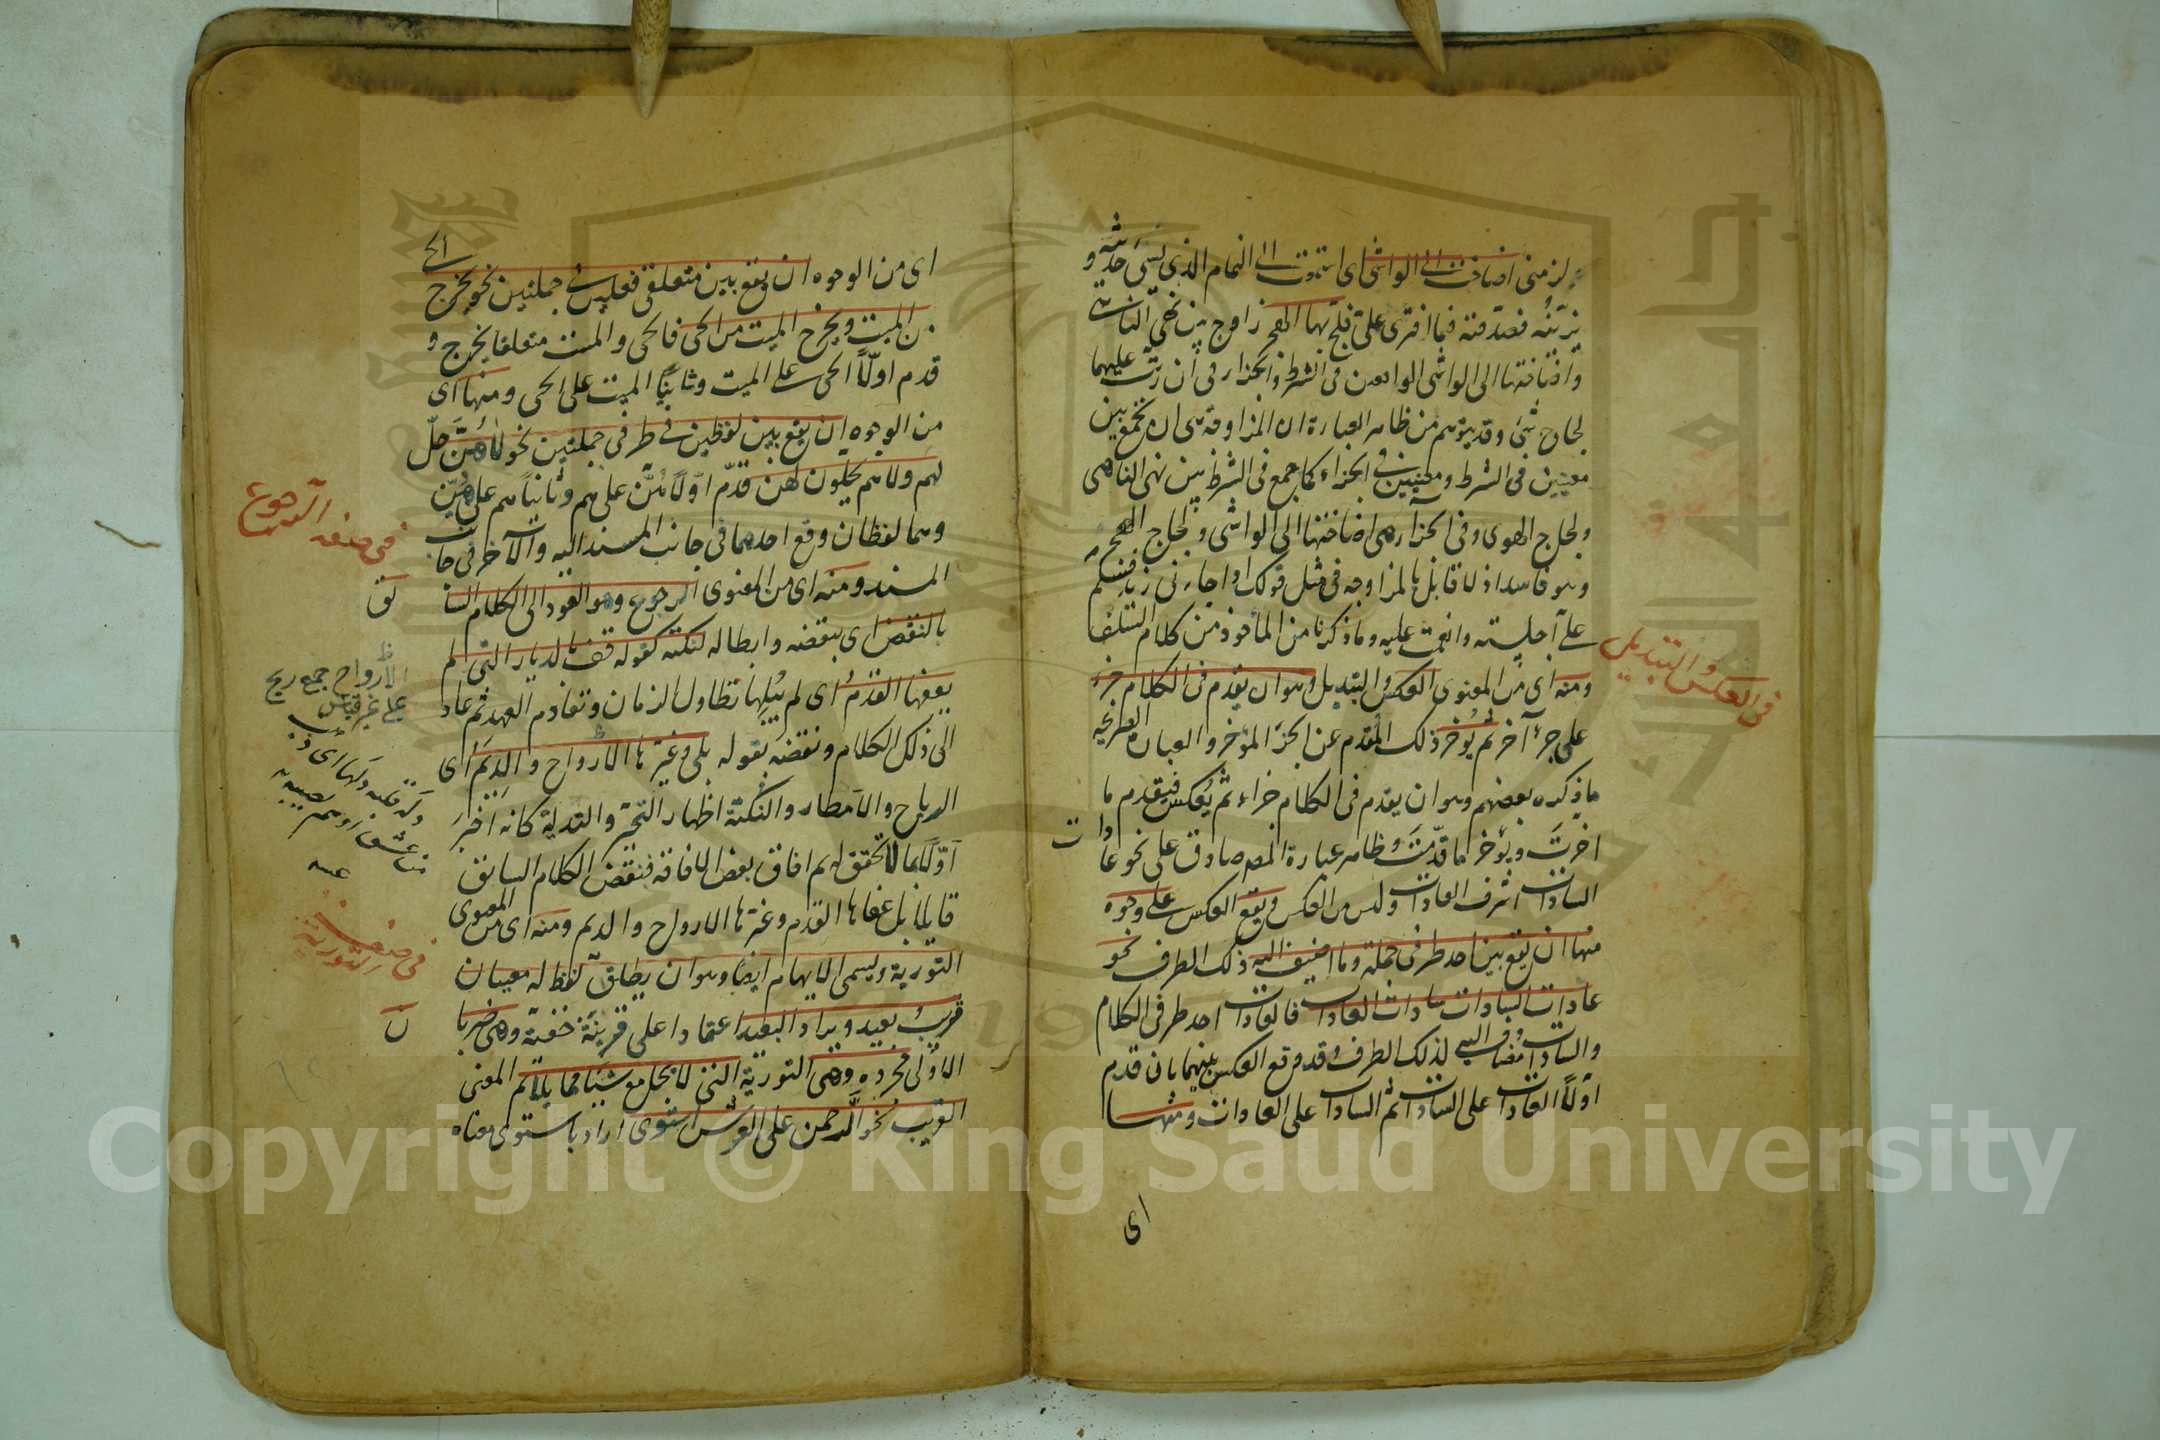 لزمنى اصاخت الى الواشى اى استمعت الى النمام الذى يشى حديثه و
يزينه فصدقته فيما افترى على فلج بها الهجر زاوج بين نهى الناهى
واصاختها الى الواشى الواقعين فى الشرط والجزاء فى ان رتب عليهما
لجاج شئ وقد يتوهم من ظاهر العبارة ان المزاوجة هى ان تجمع بين
معنيين فى الشرط ومعنيين فى الجزاء كما جمع فى الشرط بين نهى الناهى
ولجاج الهوى وفى الجزاء هى اصاختها الى الواشى ولجاج الهجر
وهو فاسد اذ لا قائل بالمزاوجة فى مثل قولك اذا جاءنى زيد فسلم
على اجلسته وانعمت عليه وما ذكرنا هو المأخوذ من كلام السلف
ومنه اى من المعنوى العكس والتبديل وهو ان يقدم فى الكلام جزء
على جزء آخر ثم يؤخر ذلك المقدم عن الجزء المؤخر والعبارة الصريحة
ما ذكره بعضهم وهو ان يقدم فى الكلام جزاء ثم يعكس فيقدم ما
اخرت ويؤخر ما قدمت وظاهر عبارة المص صادق على نحو عادات
السادات اشرف العادات وليس من العكس ويقع العكس على وجوه
منها ان يقع بين احد طرفى جملة وما اضيف اليه ذلك الطرف نحو
عادات السادات سادات العادات فالعادات احد طرفى الكلام
والسادات مضاف اليه لذلك الطرف وقد وقع العكس بينهما بان قدم
اولا العادات على السادات ثم السادات على العادات ومنها
اى
فى العكس والتبديل
اى من الوجوه ان يقع بين متعلقى فعلين فى جملتين نحو يخرج الحى
من الميت ويخرج الميت من الحى فالحى والميت متعلقا يخرج و
قدم اولا الحى على الميت وثانيا الميت على الحى ومنها اى
من الوجوه ان يقع بين لفظين فى طرفى جملتين نحو لا هن حل
لهم ولا هم يحلون لهن قدم اولا هن على هم وثانيا هم على هن
وهما لفظان وقع احدهما فى جانب المسند اليه والآخر فى جانب
المسند ومنه اى من المعنوى الرجوع وهو العود الى الكلام السابق
بالنقض اى بنقضه وابطاله لنكتة كقوله قف بالديار التى لم
يعفها القدم اى لم يبلها تطاول الزمان وتقادم العهد ثم عاد
الى ذلك الكلام ونقضه بقوله بلى وغيرها الارواح والديم اى
الرياح والامطار والنكتة اظهار التحير والتدله كانه اخبر
اولا بما لا تحقق له ثم افاق بعض الافاقة فنقض الكلام السابق
قائلا بل عفاها القدم وغيرها الارواح والديم ومنه اى من المعنوى
التورية ويسمى الايهام ايضا وهو ان يطلق لفظ له معنيان
قريب بعيد ويراد البعيد اعتمادا على قرينة خفية وهى ضربان
الاولى مجردة وهى التورية التى لا يجامع شيئا مما يلائم المعنى
القريب نحو الرحمن على العرش استوى اراد باستوى معناه
فى صفة الرجوع
الارواح جمع ريح
على غير قياس
فى صفة
التورية